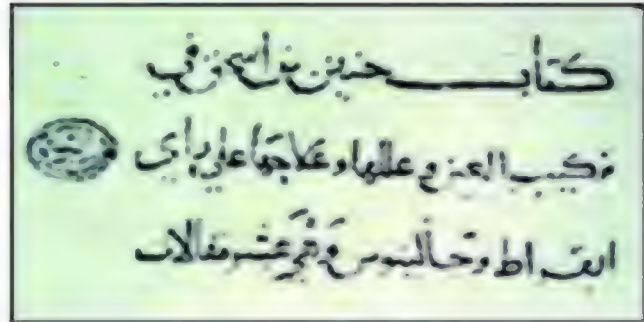 كتاب حنين بن اسحق في
تركيب العين وعللها وعلاجها على راي
ابقراط وجالينوس وهي عشر مقالات